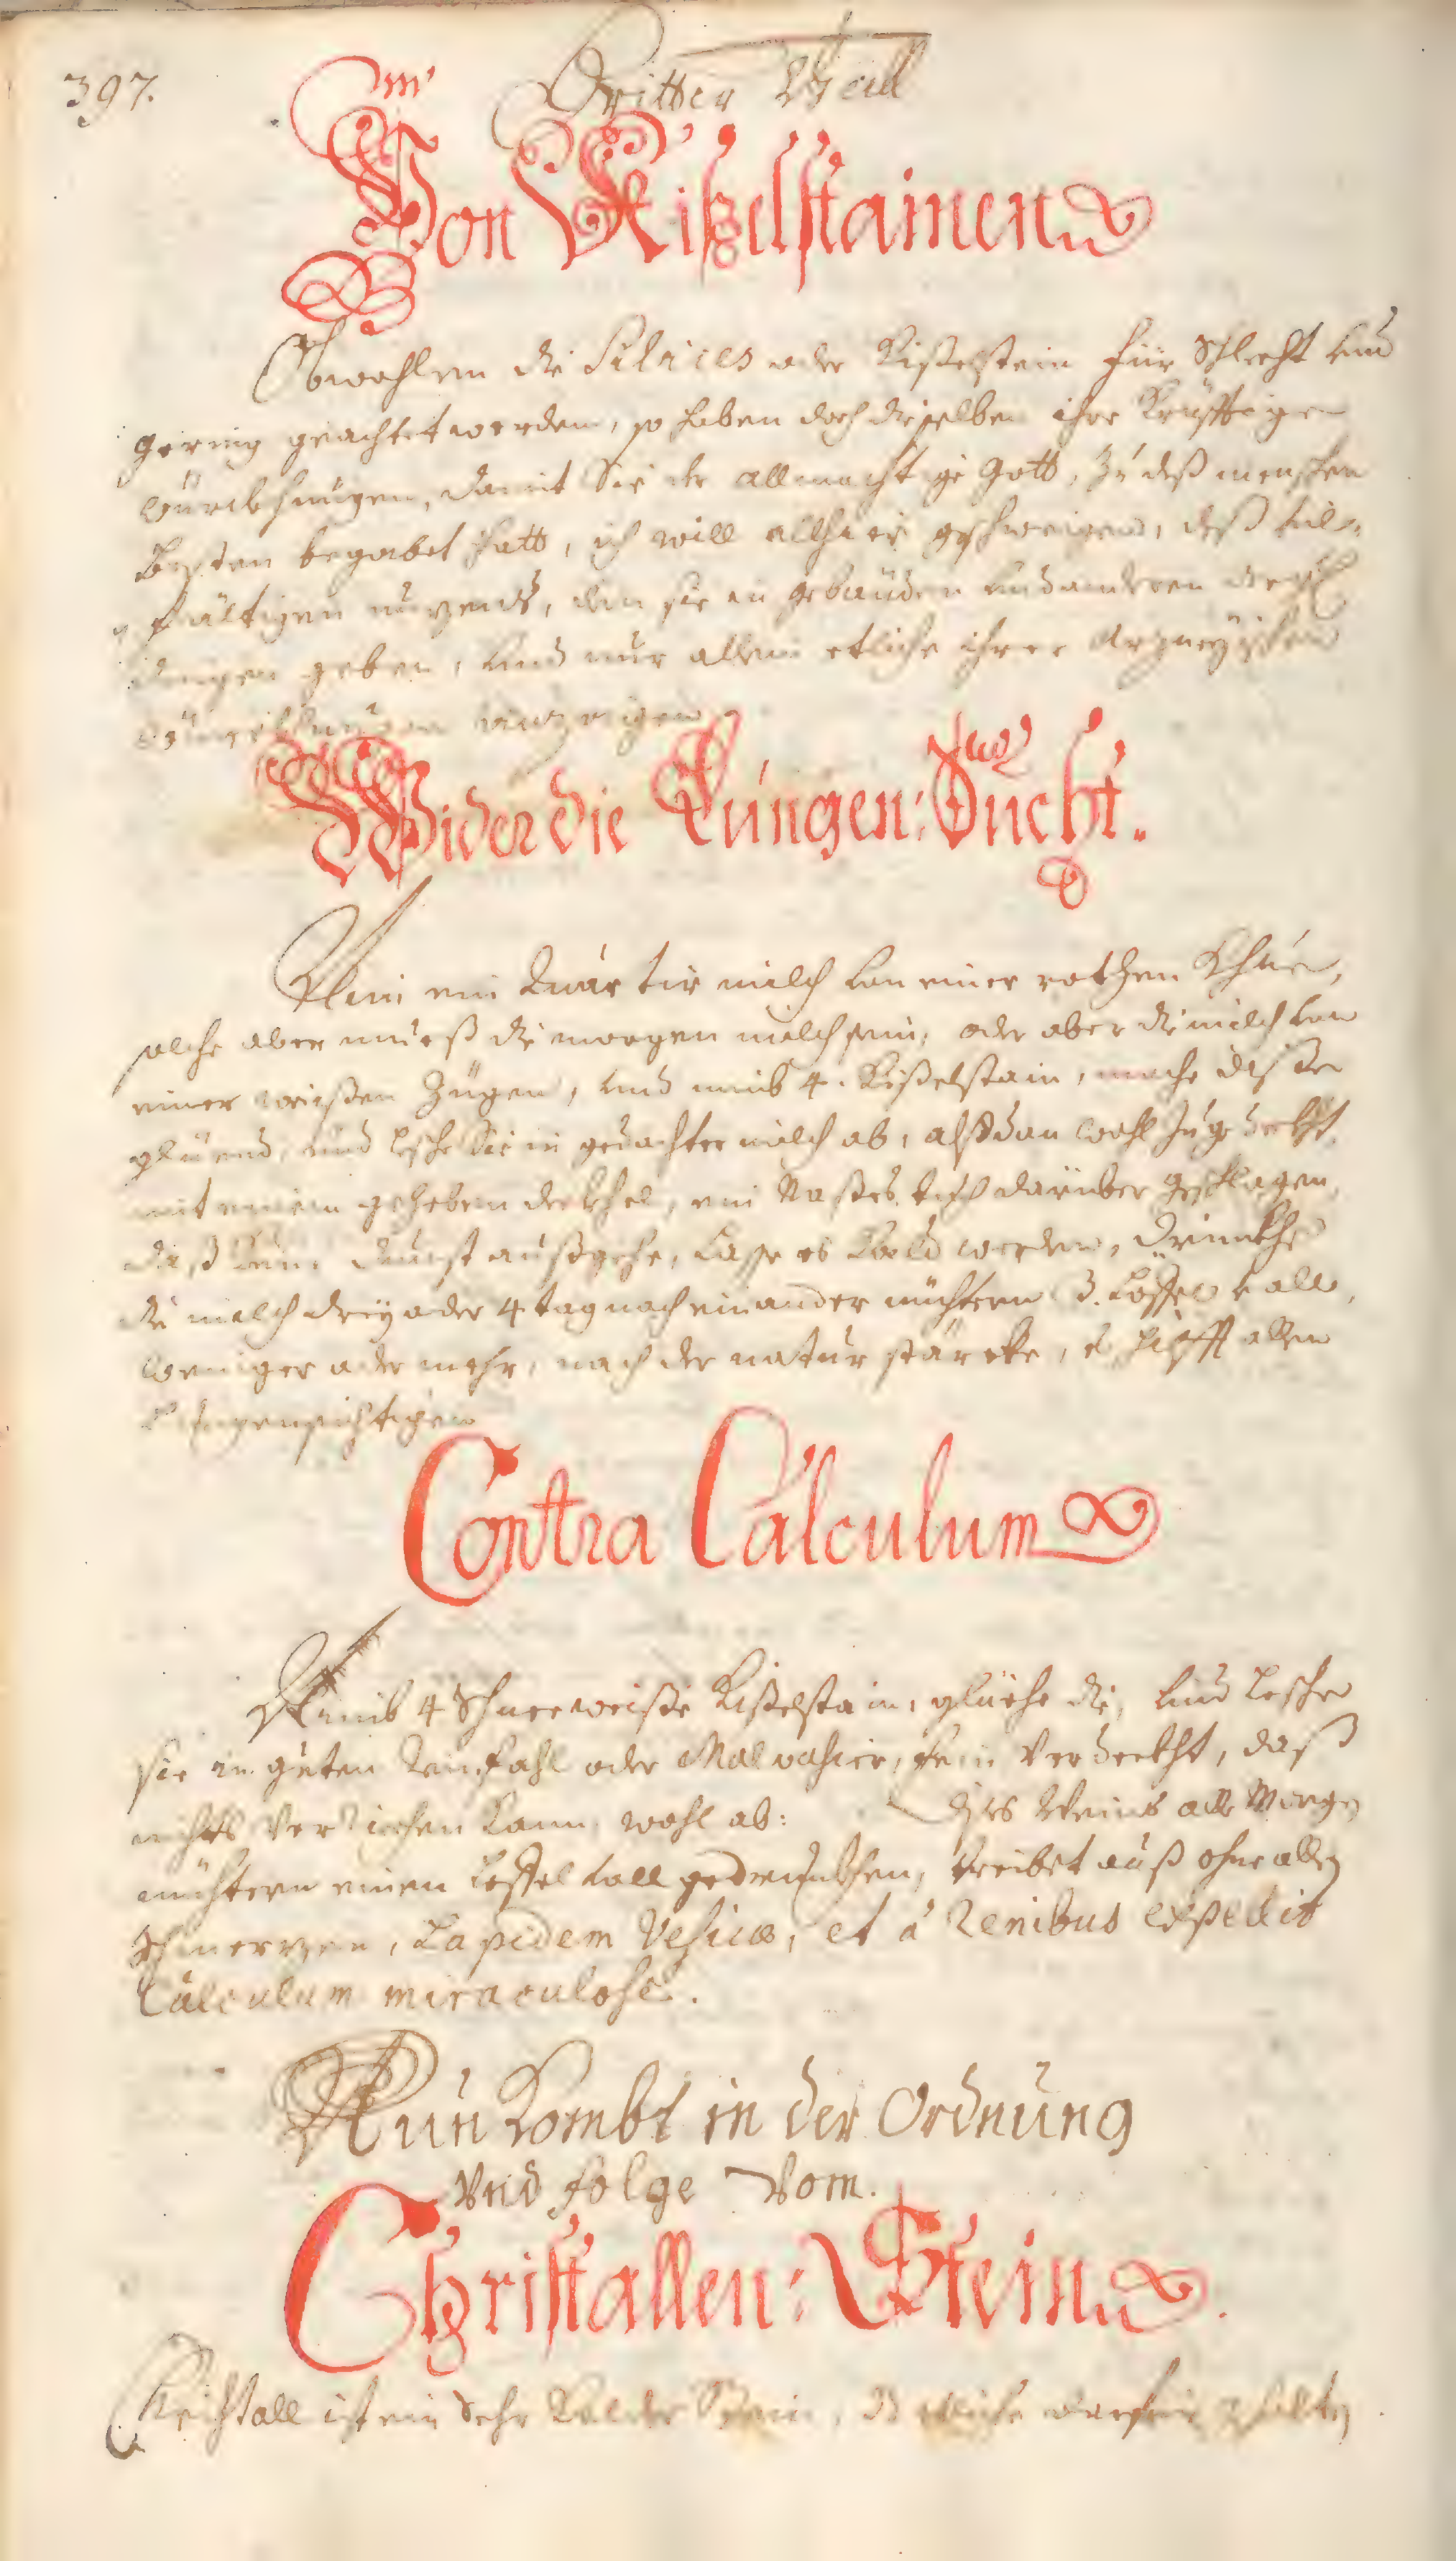 397.
Dritter Theil
Von Kißelstainen
Obwohlen die Silices oder Kißelstein für schlecht und
gering geachtet werden, so haben doch dieselben ihre Kräfftige
würckhungen, damit Sie der allmächtige Gott, zu deß menschen
besten begabet hatt, ich will allhier geschweigen, deß viel-
fältigen nuzens, den sie in gebäuden und anderen
dingen geben, und nur allein etliche ihrer Arzneyischen
würckhungen
Wider die Lungen: Sucht.
Nim ein Quartir milch von einer rothen Khue,
solche aber mueß die morgen milch sein, oder aber die milch von
einer weissen Zügen, und nimb 4. Kißelstain, mache diße
glüend, und lesche Sie in gedachter milch ab, alßdan wohl zugedeckht
mit einem deckhel, ein Nasses tuch darüber geschlagen,
daß kein dunst außgehe, lasse es kalt werden, drinckhe
die milch drey oder 4 tag nach einander nüchtern 3. Löffel voll,
weniger oder mehr, nach der natur stärcke, es hilfft allen
Lungensichtigen
Contra Calculum
Nimb 4 Schneeweisse Kißelstain, glüehe die, und lesche
sie in guten Rainfahl oder Malvahier, fein verdeckht, daß
nichts verriechen kann, wohl ab: dises Weins alle Morgen
nüchtern einen Leffel voll gedrunckhen, treibet auß ohne allen
schmerzen, Lapidem Vesicæ, et à Renibus expellit
Calculum miraculose.
Nun Kombt in der Ordnung
Und folge Vom.
Christallen: Stein
Christall ist ein Sehr Kalter Stein,